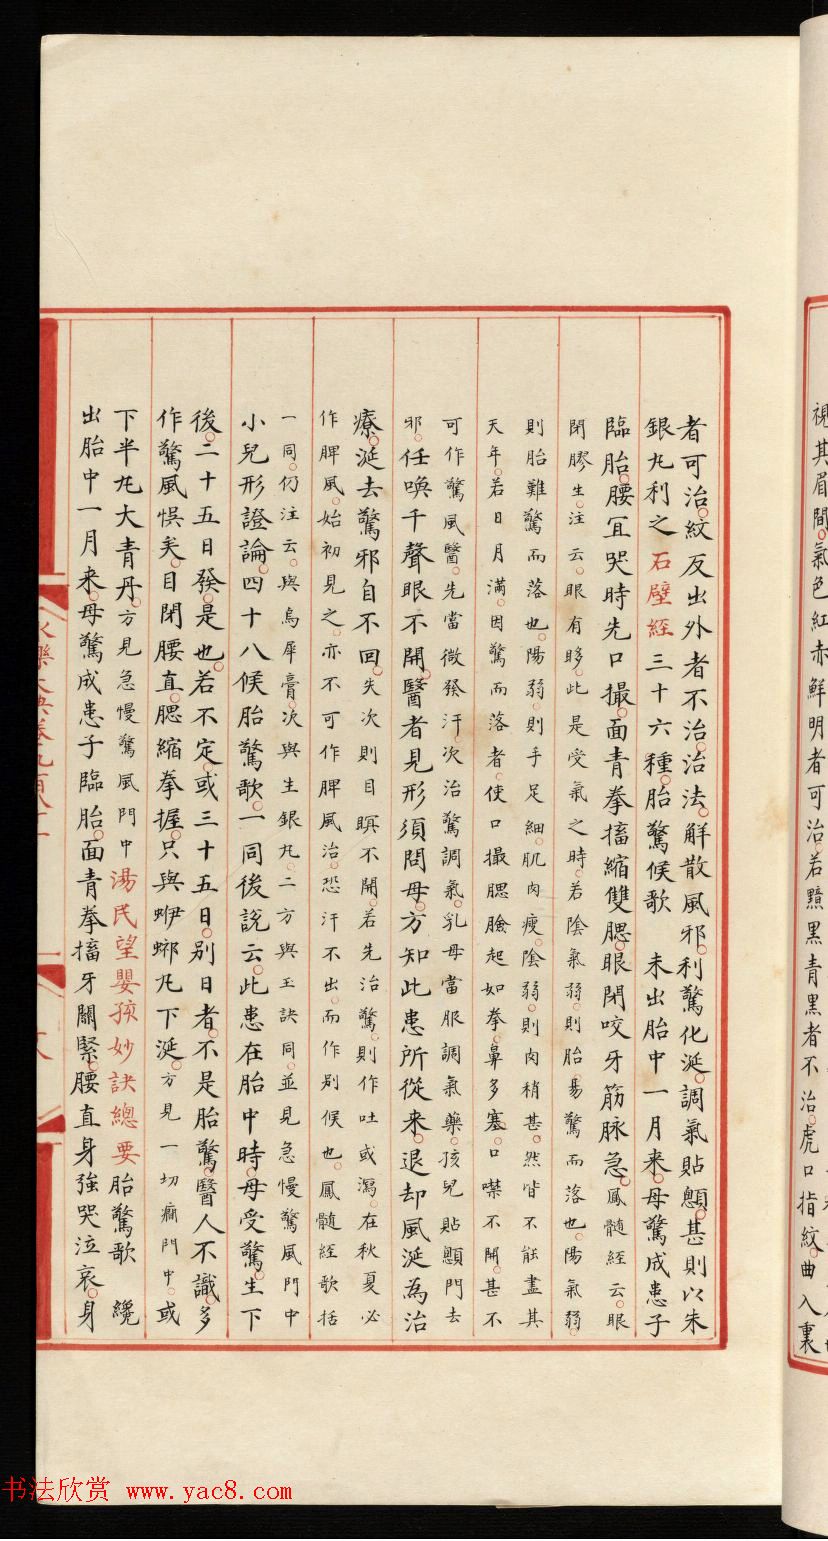 視其眉間。氣色紅赤鮮明者可治。若黯黑青黑者不治。虎口指紋。曲入裏
者可治。紋反出外者不治。治法。解散風邪。利驚化涎。調氣貼顖。甚則以朱
銀丸利之。石壁經三十六種。胎驚候歌 未出胎中一月來。母驚成患子
臨胎。腰冝哭時先口撮。面青拳搐縮雙腮。眼閉咬牙筋脉急。鳳髓經云。眼
閉膠生。注云。眼有眵。此是受氣之時。若陰氣弱。則胎易驚而落也。陽氣弱。
則胎難驚而落也。陽弱。則手足細。肌肉瘦。陰弱。則肉稍甚。然皆不能盡其
天年。若日月滿。因驚而落者。使口撮腮臉起如拳。鼻多塞。口噤不開。甚不
可作驚風醫。先當微發汗。次治驚調氣。乳母當服調氣藥。孩兒貼顖門去
邪。任喚千聲眼不開。醫者見形須問母。方知此患所從來。退却風涎為治
療。涎去驚邪自不回。失次則目瞑不開。若先治驚。則作吐或瀉。在秋夏必
作脾風。始初見之。亦不可作脾風治。恐汗不出。而作別候也。鳳髓經歌括
一同。仍注云。與烏犀膏。次與生銀丸。二方與玉訣同。並見急慢驚風門中
小兒形證論。四十八候胎驚歌。一同後説云。此患在胎中時。母受驚。生下
後。二十五日發。是也。若不定。或三十五日。別日者。不是胎驚。醫人不識。多
作驚風悞矣。目閉腰直。腮縮拳握。只與蚵蚾丸下涎。方見一切癇門中。或
下半丸大青丹。方見急慢驚風門中湯民望嬰孩妙訣總要胎驚歌 纔
出胎中一月來。母驚成患子臨胎。面青拳搐牙關緊。腰直身強哭泣哀。身
永樂大典卷九百八十一
書法欣赏 www.yac8.com